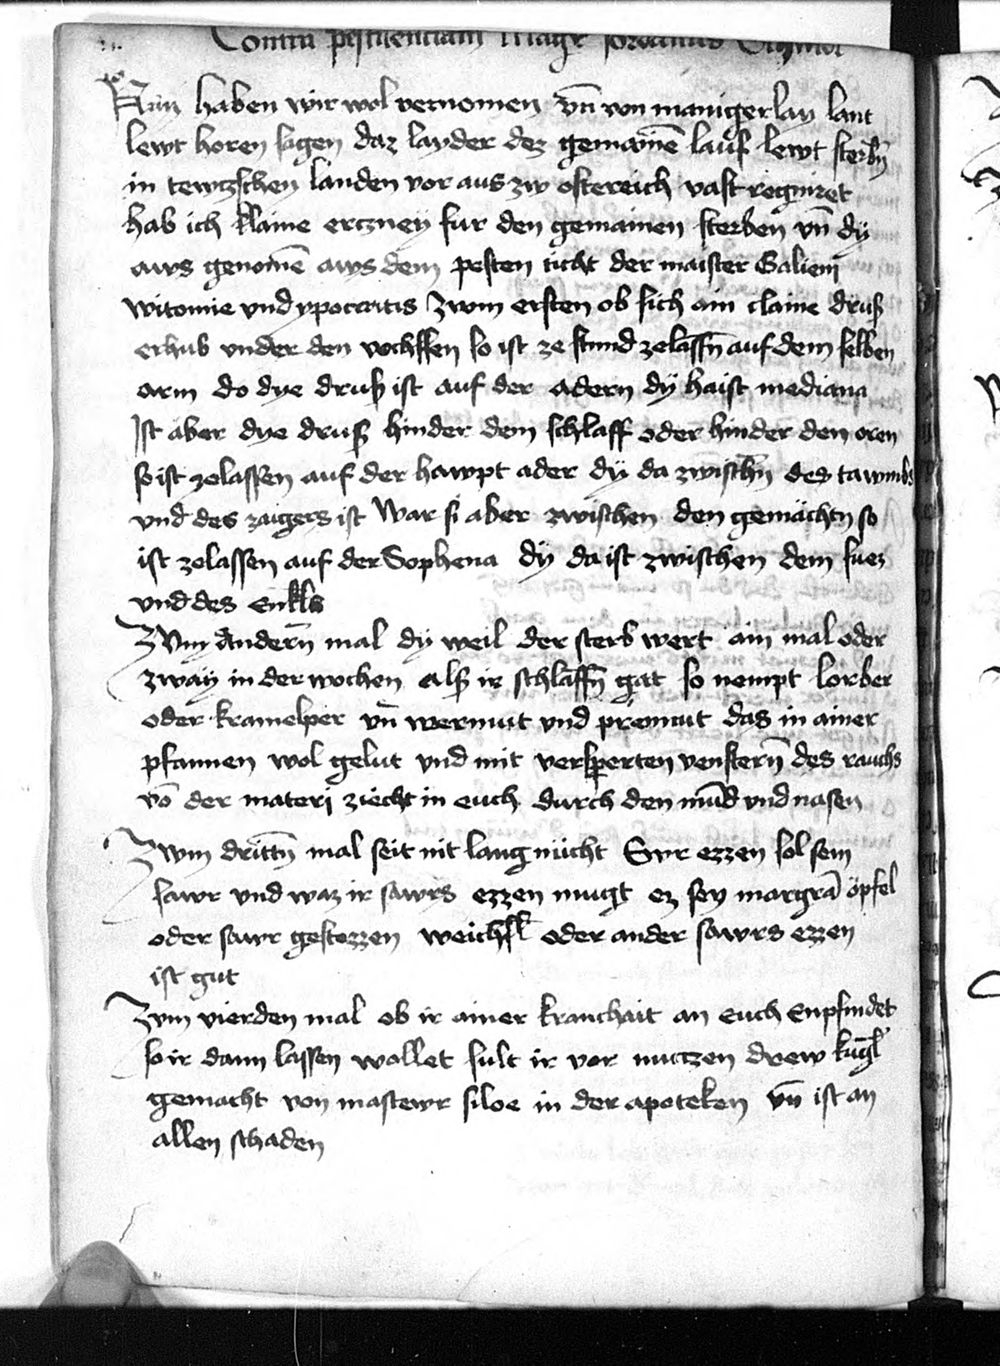 Contra pestilentiam Magr Jordanus
Nun haben wir wol vernomen vnd von maniger lay lant
lewt horen sagen daz layder dez gemainē lauf lewt sterbn̄
in tewtzschen landen vor aus zw ostereich vast regniret
hab ich klaine erczney fur den gemainen sterben vn̄ dy
aws genomē aws dem pesten ticht der maister Galieni
vnd ypocratis Zwm ersten ob sich ain claine druß
erhub vnder den vochssen so ist ze stund zelassn̄ auf dem selben
arm do dye druß ist auf der adern dÿ haist mediana
Ist aber dye druß hinder dem schlaff oder hinder den oren
so ist zelassen auf der hawpt ader dÿ da zwischn̄ des tawmbs
vnd des zaigers ist War si aber zwischen den gemächtn so
ist zelassen auf der Sophena dÿ da ist zwischen dem fuez
vnd des enkls
Zum Andern̄ mal dy weil der sterb wert ain mal oder
zwaÿ in der wochen alß ir schlaffn̄ gat so nempt lorber
oder kramelper vn̄ wermut vnd premut das in ainer
pfannen wol gelut vnd mit versperten venstern̄ des rauchs
vō der materi ziecht in euch durch den mūd vnd nasen
Zwm drittn̄ mal seit nit lang nücht Ewr ezzen sol sein
sawr vnd waz ir sawrs ezzen mugt ez sey margrā öpfel
oder sawr gestozzen weichsl oder ander sawrs ezzen
ist gut
Zum vierden mal ob ir ainer kranchait an euch enpfindet
so ir dann lassen wollet sult ir vor nutzen drew kugl̄
gemacht von mastewr siloe in der apoteken vn̄ ist an
allen schaden